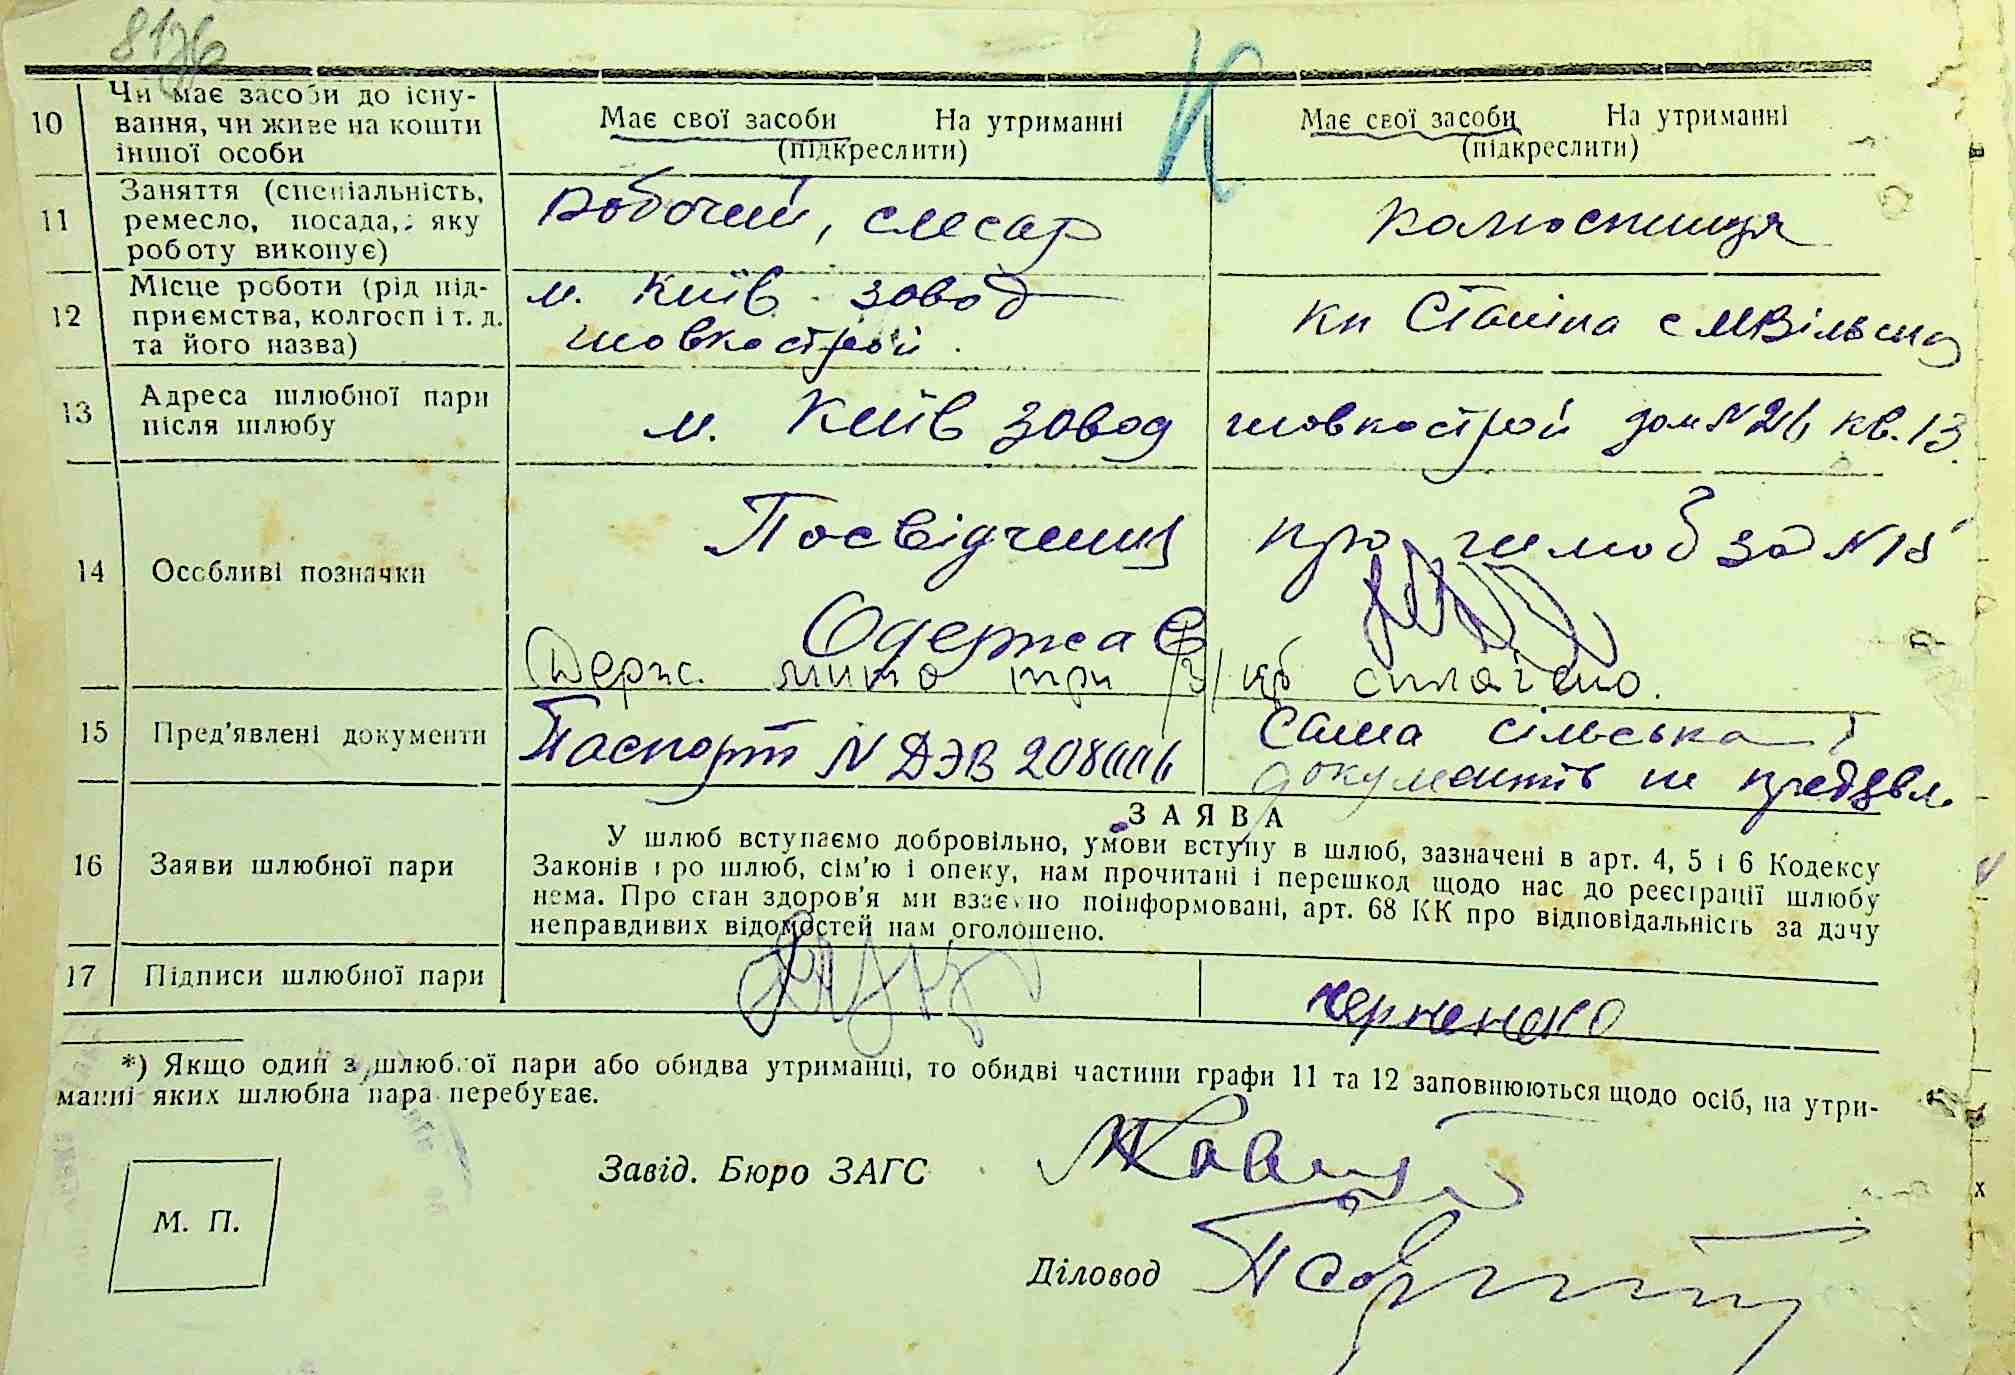 8176
10
Чи має засоби до існу-
вання, чи живе на кошти
іншої особи
Має свої засоби На утриманні
(підкреслити)
Має свої засоби На утриманні
(підкреслити)
11
Заняття (спеціальність,
ремесло, посада, яку
роботу виконує)
робочий, слесар
колгоспниця
12
Місце роботи (рід під-
приємства, колгосп і т. д.
та його назва)
м. Київ завод
шовкострой.
кп Сталіна с
13
Адреса шлюбної пари
після шлюбу
м. Київ завод шовкострой дом № кв. 13.
14
Особливі позначки
Посвідчення про шлюб за №
Одержав
Держ. мито три /3/ крб сплачено.
15
Пред'явлені документи
Паспорт № ДЭВ
сама сільська
документів не предявл.
16
Заяви шлюбної пари
ЗАЯВА
У шлюб вступаємо добровільно, умови вступу в шлюб, зазначені в арт. 4, 5 і 6 Кодексу
Законів про шлюб, сім'ю і опеку, нам прочитані і перешкод щодо нас до реєстрації шлюбу
нема. Про стан здоров'я ми взаємно поінформовані, арт. 68 КК про відповідальність за дачу
неправдивих відомостей нам оголошено.
17
Підписи шлюбної пари
*) Якщо один з шлюбної пари або обидва утриманці, то обидві частини графи 11 та 12 заповнюються щодо осіб, на утри-
манні яких шлюбна пара перебуває.
Завід. Бюро ЗАГС
М. П.
Діловод